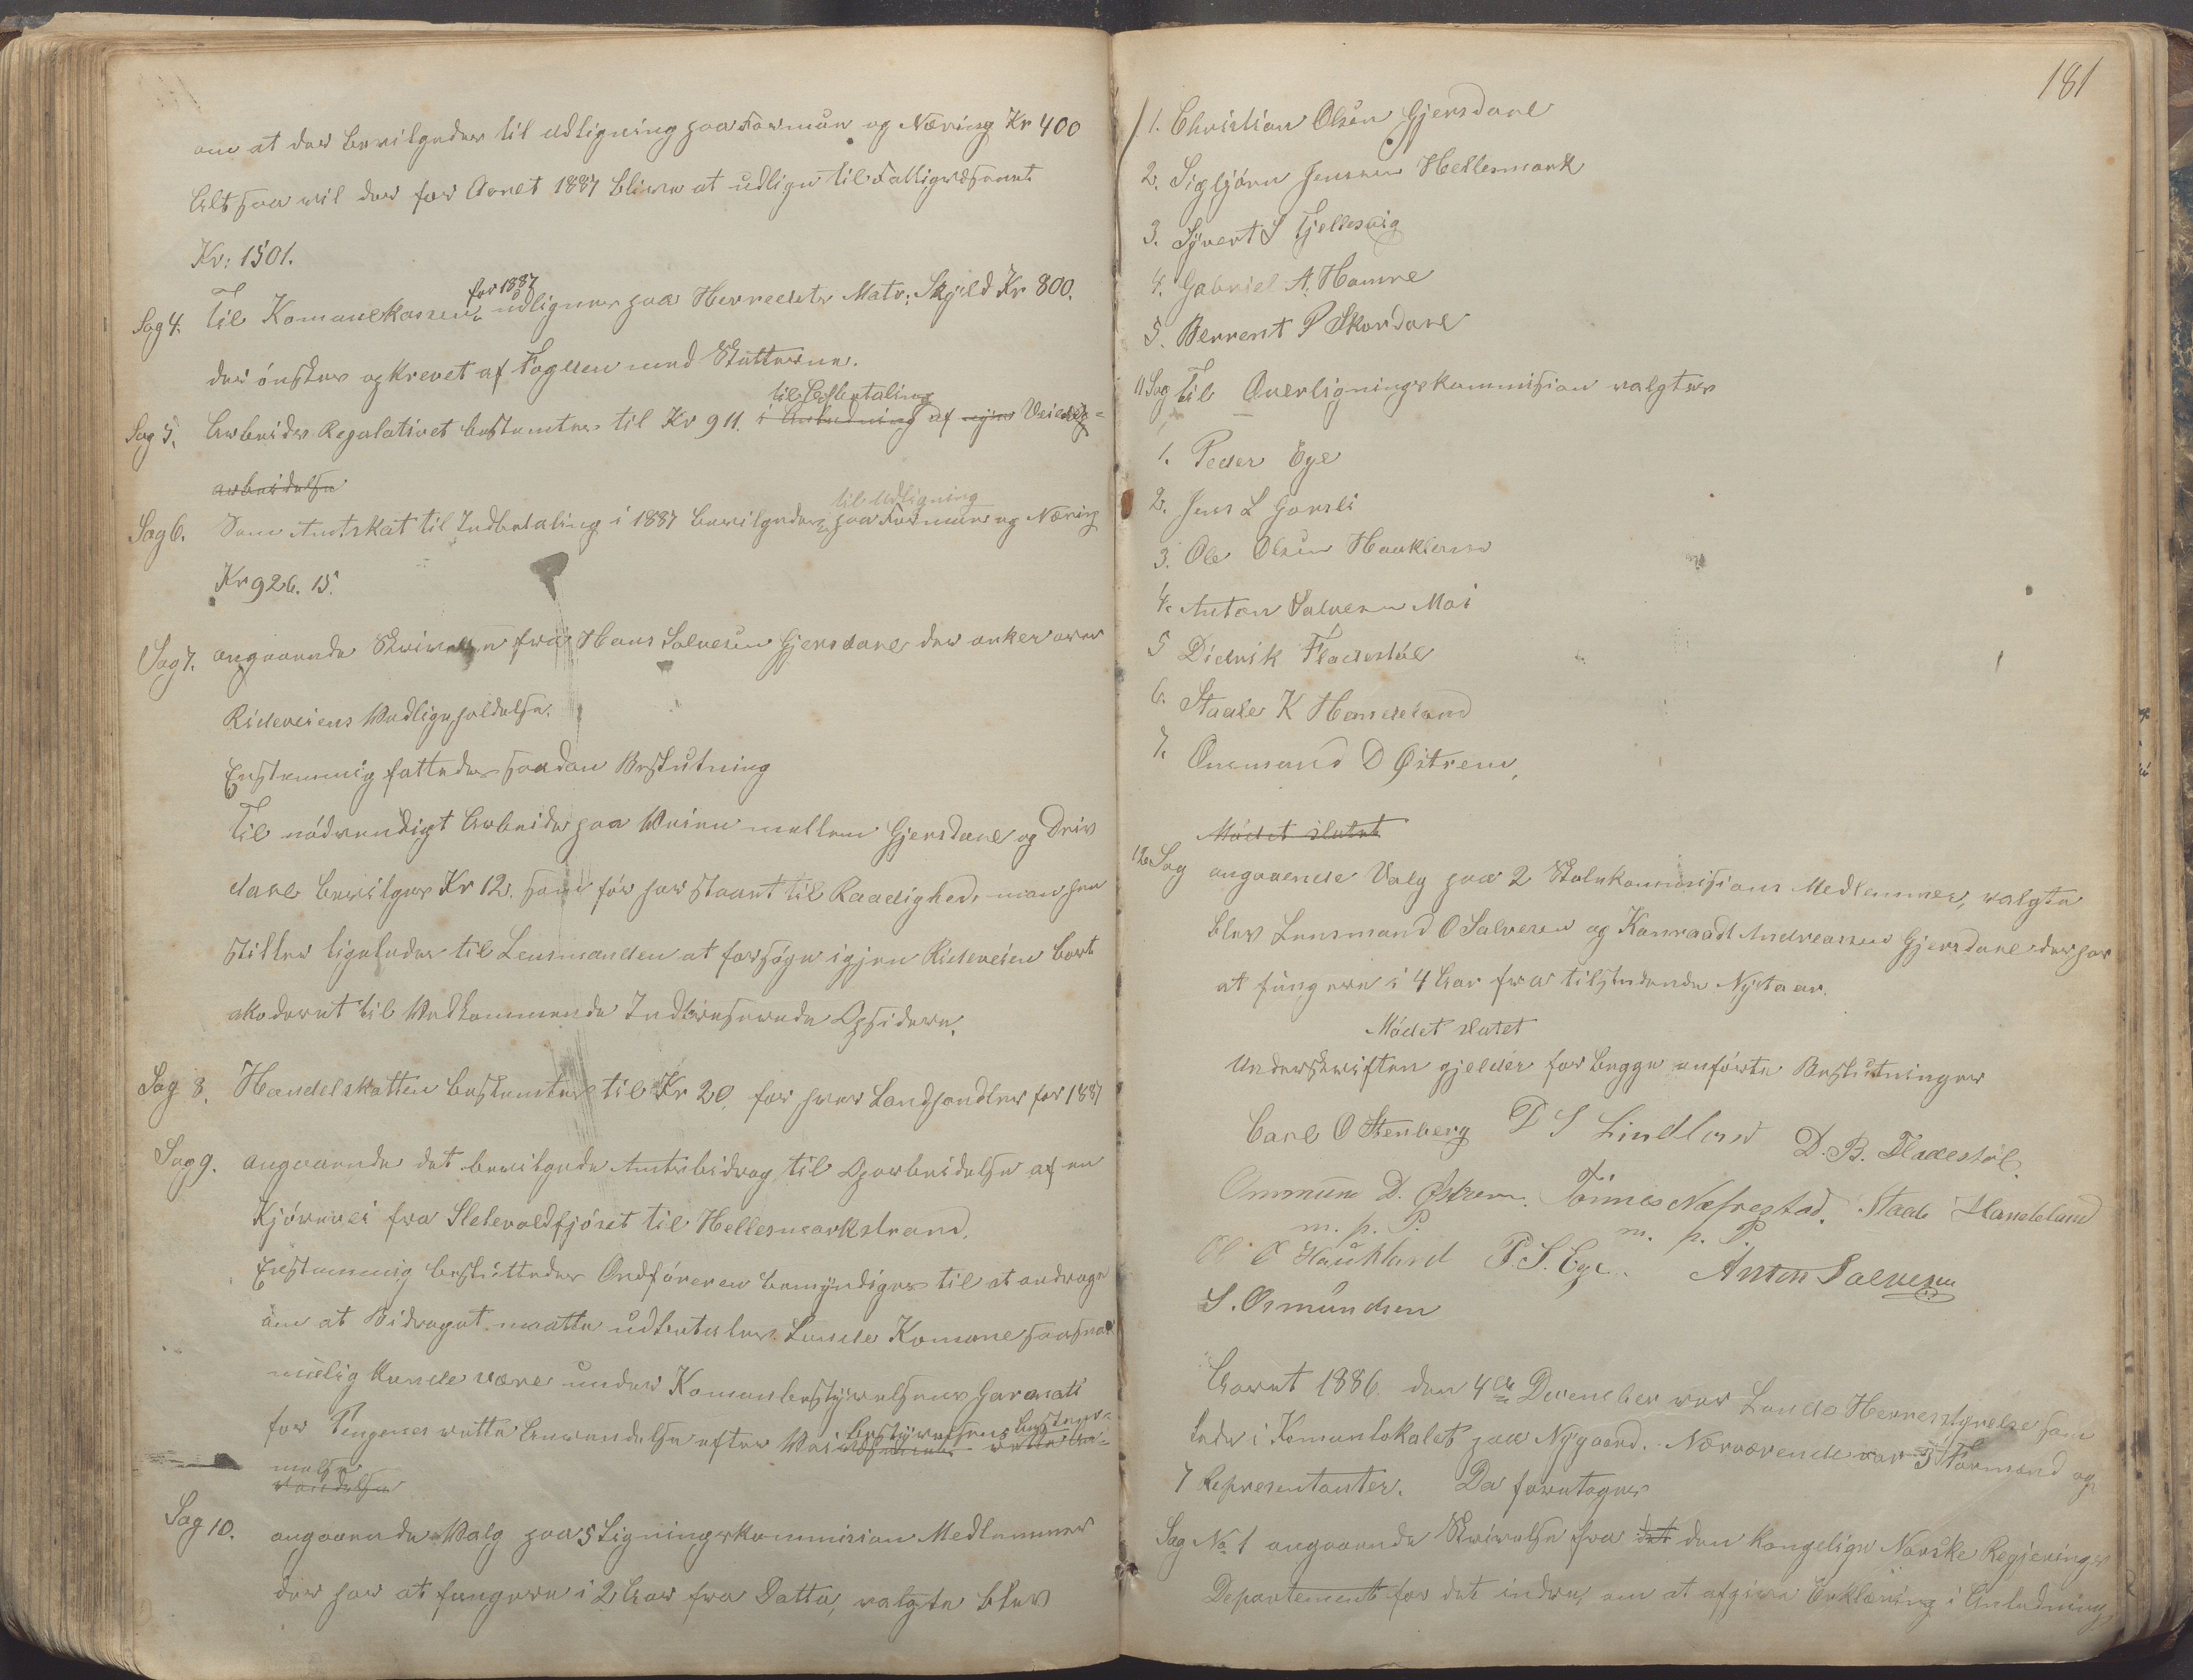 om at der bevilgedes til Udligning paa Formue og Næring Kr 400
Altsaa vil der for Aaret 1887 blive at udligne til Fattigvæsenet
Kr: 1501.
Sag 4. Til Komunekassen for 1887 udlignes paa Herredets Matr: Skyld Kr 800.
der ønskes og krevet af Fogden med Skatterne.
Sag 5. Arbeids Regulativet bestemtes til Kr 911. i Anledning til Afbetaling af nyen Veiens-
arbeidelse
Sag 6. Som Amtskat til Indbetaling i 1887 bevilgedes til Udligning paa Formue og Næring
Kr 926. 15.
Sag 7. angaaende Skrivelse fra Hans Salvesen Gjersdal der anker over
Rideveiens Vedligeholdelse.
Enstemmig fattedes saadan Beslutning
Til nødvendigt Arbeide paa Veien mellem Gjersdal og Driv
dal bevilges Kr 12. som før har staaet til Raadighed, man hen
stiller ligeledes til Lensmanden at forsøge igjen Rideveien bort
akoderet til Vedkommende Indteresserede Opsidere.
Sag 8. Handelskatten bestemtes til Kr 20 for hver Landhandler for 1887
Sag 9. angaaende det bevilgede Amtsbidrag til Oparbeidelse af en
Kjørevei fra Sletevoldfjøset til Hellesmarkstrand.
Enstemmig besluttedes Ordføreren bemyndiges til at andrage
om at Bidraget maatte udbetales Lunde Komune saasnart
mulig kunde være under Komunbestyrelsens Garanati
for Pengenes rette Anvendelse efter Veibestyrelsens bestem-
melse
Sag 10. angaaende Valg paa 5 Ligningskommision Medlemmer
der har at fungere i 2 Aar fra Datto, valgte blev
181
1. Christian Olsen Gjersdal
2. Sigbjørn Jensen Hellesmark
3. Syvert S Tjellesvig
4. Gabriel A. Hamre
5. Berrent P Skordal
11 Sag Til Overligningskommission valgtes
1. Peder Ege
2. Jens L Gorsli
3. Ole Olsen Haukland
4. Anton Salvesen Moi
5 Didrik Fladestøl
6. Staale K Handeland
7. Ommund D Østrem,
Mødet slutet
12 Sag angaaende Valg paa 2 Skolekommissions Medlemmer, valgte
blev Lensmand O Salvesen og Konraadt Andreassen Gjersdal der har
at fungere i 4 Aar fra tilstundende Nytaar.
Mødet slutet
Underskriften gjelder for begge anførte Beslutninger
Carl O Stenberg T S Lindland D. B. Fladestøl.
Ommund D. Østrem. Tønnes Næsrestad. Staale Handeland
m. p. P. m. p. P.
Ol O Haukland P. S. Ege. Anton Salvesen
S. Osmundsen
Aaret 1886 den 4de December var Lunds Herresstyrelse sam
lede i Komunlokalet paa Nygaard. Nærværende var 3 Formænd og
7 Representanter. Da foretoges
Sag No 1 angaaende Skrivelse fra det den kongelige Norske Regjerings
Departement for det indre, om at afgive Erklæring i Anledning